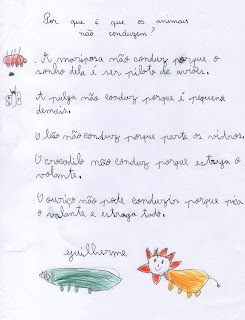 Por que é que os animais
não conduzem?
. A mariposa não conduz porque o
sonho dela é ser piloto de aviões.
A pulga não conduz porque é pequena
demais.
O leão não conduz porque parte os vidros.
O crocodilo não conduz porque estraga o
volante.
O ouriço não pode conduzir porque pica
o volante e estraga tudo.
guilherme